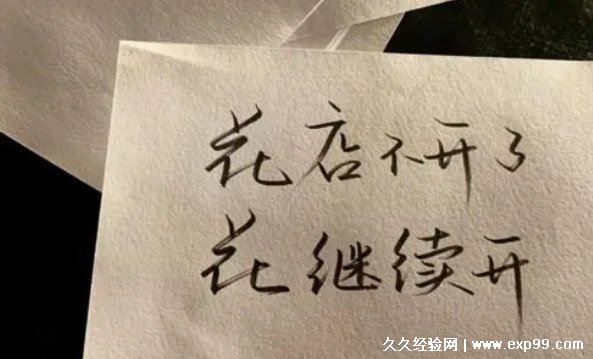 花店不开了
花继续开
久久经验网 | www.exp99.com